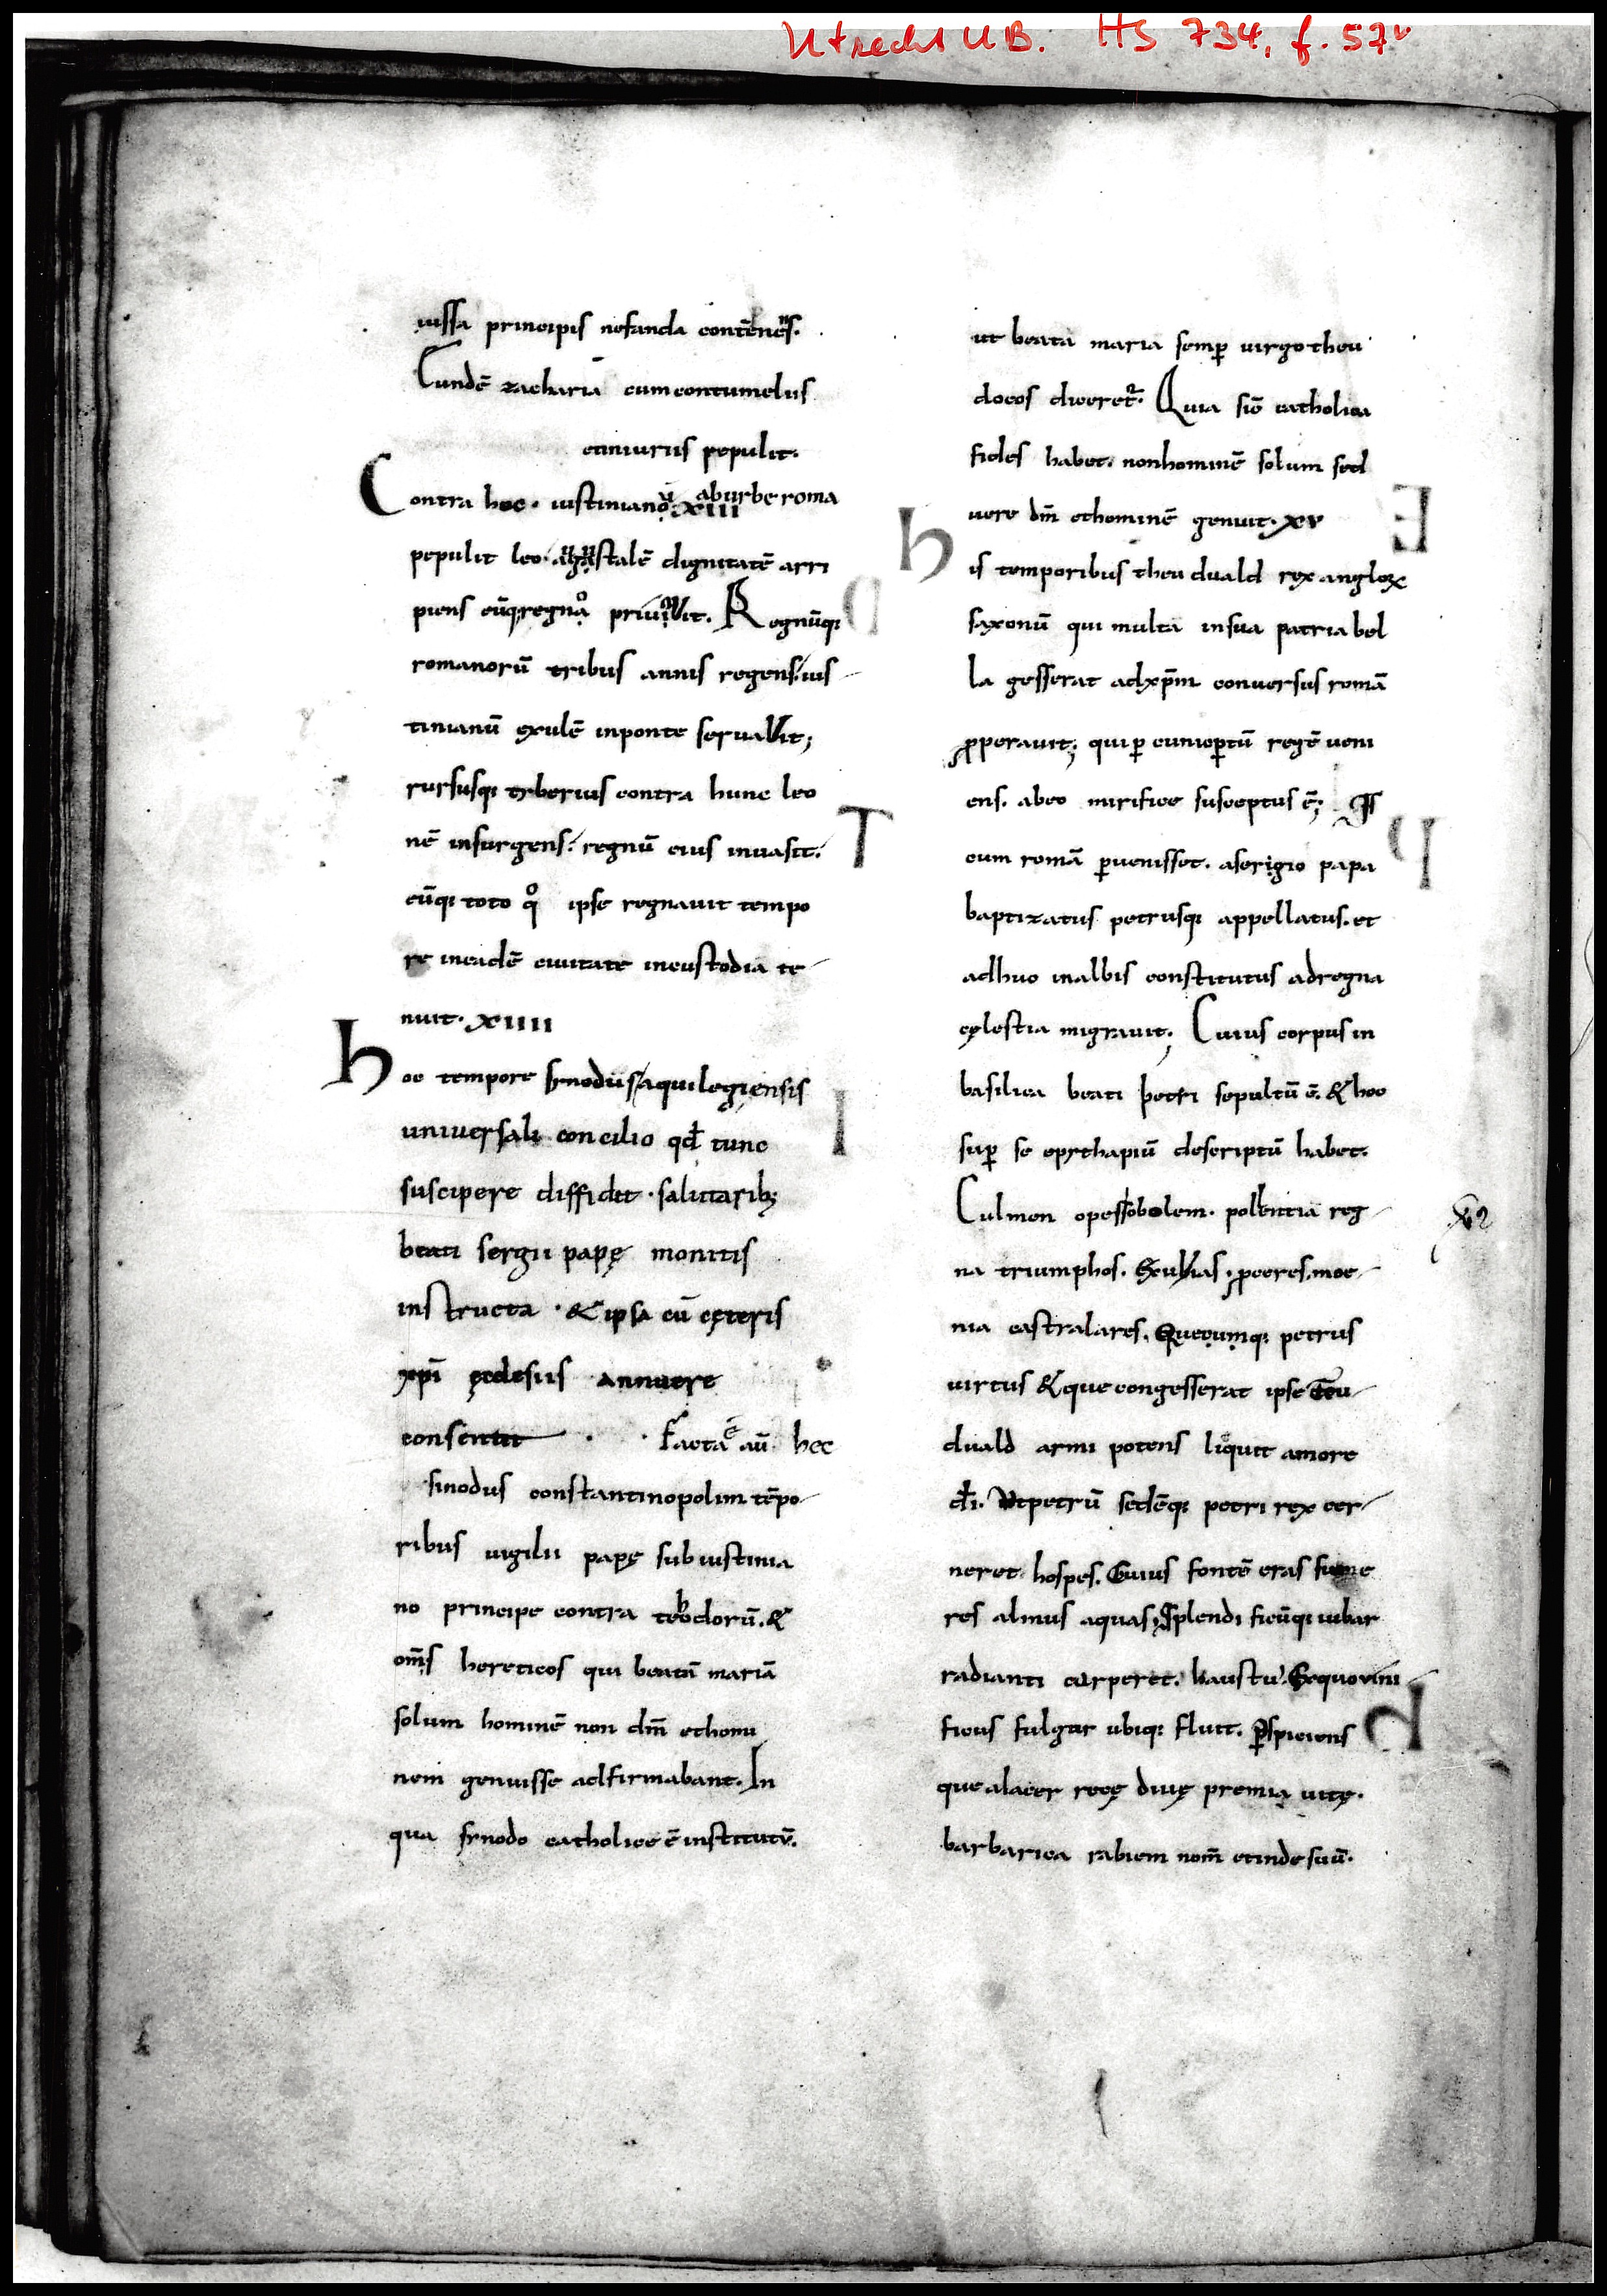 Utrecht UB. HS 734, f. 57v
iussa principis nefanda contēnens.
Eundē zachariā cum contumeliis
etiniuriis pepulit.
Contra hoc. iustinianū XIII aburbe roma
pepulit leo. stalē dignitatē arri
piens eūq; regno priuavit. Regnūq;
romanorū tribus annis regens. ius
tinianū exulē inponte servavit;
rursusq; tyberius contra hunc leo
nē insurgens. regnū eius inuasit.
eūq; toto qo ipse regnavit tempo
re ineadē ciuitate incustodia te
nuit. XIIII
hoc tempore synodus aquilegiensis
universali concilio qđ tunc
suscipere diffidit. salutarib;
beati sergii papę monitis
instructa. & ipsa cū cęteris
xpī ęcclesiis annuere
consentit. Facta ē aū hec
sinodus constantinopolim tēpo
ribus uigilii papę sub iustinia
no principe contra teodorū. &
om̄s hereticos qui beatā mariā
solum hominē non dm̄ ethomi
nem genuisse adfirmabant. In
qua synodo catholice ē institutū.
ut beata maria semp̄ uirgo theu
docos diceret̄. Quia sic̄ catholica
fides habet. nonhominē solum sed
uere dm̄ ethominē genuit. XV
his temporibus theuduald rex angloꝝ
saxonū qui multa insua patria bel
la gesserat adxp̄m conuersus romā
ꝓperauit; qui ꝑ cunicpertū regē ueni
ens. abeo mirifice susceptus ē; Is
cum romā ꝑuenisset. asergio papa
baptizatus petrusq; appellatus. et
adhuc inalbis constitutus adregna
cęlestia migrauit; Cuius corpus in
basilica beati petri sepultū ē. & hoc
suꝑ se epythapiū descriptū habet.
Culmen opes sobolem. pollentia reg
na triumphos. Exuvias, ꝓceres. moe
nia castralares. Quecumq; petrus
uirtus & que congesserat ipse Ceu
duald armi potens liquit amore
dī. Utpetrū sedēq; petri rex cer
neret hospes. Cuius fontē eras sume
res almus aquas, Splendi ficūq; iubar
radianti carperet. haustu. Ex quo uiui
ficus fulgur ubiq; fluit. Perspiciens
que alacer rece diuę premia uitę.
barbarica rabiem nom̄ etinde suū.